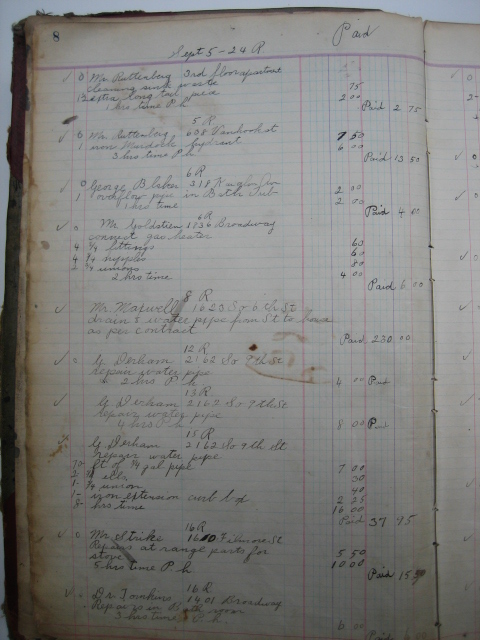 8
Paid
Sept 5-24 R
0 Mr. Ruttenberg 3rd floor apartment
cleaning sink waste 75
extra long tail piece 2 00
1 hrs time P h Paid 2 75
5 R
6 Mr. Ruttenberg 638 Vanhook st 7 50
1 iron Murdock hydrant 6 00
3 hrs time P h Paid 13 50
6 R
0 George B 318
1 overflow pipe in Bath Tub 2 00
1 hrs time 2 00
Paid 4 00
6 R
0 Mr. Goldstien 1936 Broadway
connect gas heater
4 3/4 fittings 60
4 3/4 nipples 60
2 3/4 unions 80
2 hrs time 4 00
Paid 6 00
8 R
Mr. Maxwell 1623 So 6th St
drain & water pipe from St to house
as per contract
Paid 230 00
12 R
G Derham 2162 So 9th St
repair water pipe
2 hrs P h 4 00 Paid
13 R
G Derham 2162 So 9th St
repair water pipe
4 hrs P h 8 00 Paid
15 R
G Derham 2162 So 9th St
repair water pipe
70 ft of 3/4 gal pipe 7 00
2 3/4 ells 30
1 3/4 union 40
1 iron extension curb box 2 25
8 hrs time 16 00
Paid 37 95
16 R
0 Mr. Strike 1610 Filmore St
Repairs at range parts for
stove 5 50
5 hrs time P h 10 00
Paid 15 50
16 R
Dr. Tomkins 1401 Broadway
Repairs in Bath room
3 hrs time P h 6 00
Paid